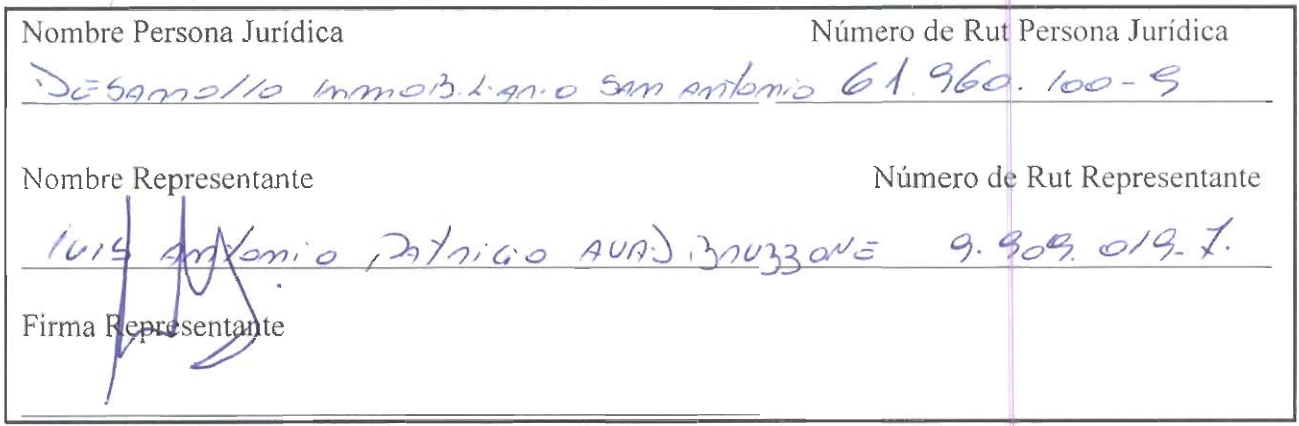 Nombre Persona Jurídica Número de Rut Persona Jurídica
Desarrollo Inmobiliario San Antonio 61.960.100-9
Nombre Representante Número de Rut Representante
Luis Antonio Patricio AUAD BRUZZONE 9.909.019-7.
Firma Representante